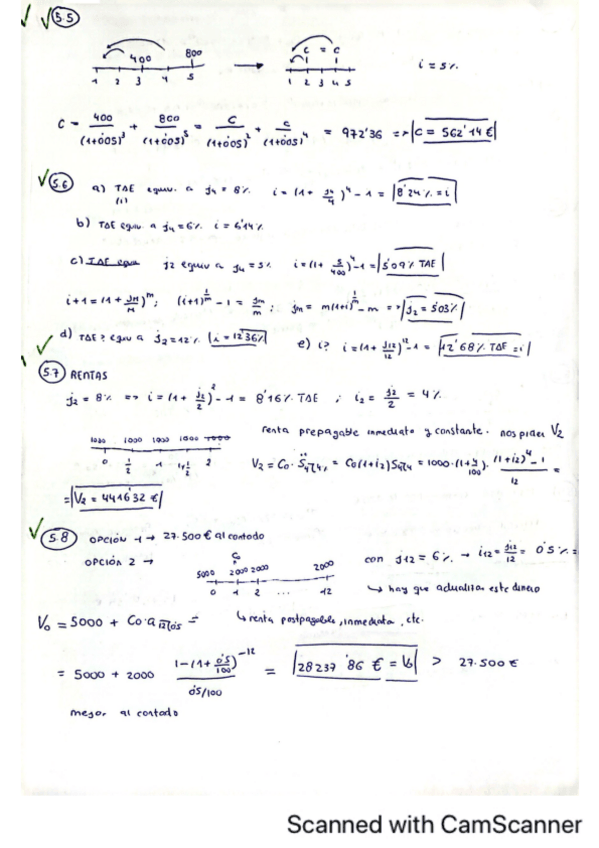 5.5
400 800
1 2 3 4 5
C = C
1 2 3 4 5
i = 5%
C = 400/(1+0'05)^3 + 800/(1+0'05)^5 = C/(1+0'05)^2 + C/(1+0'05)^4 = 972'36 => C = 562'14 €
5.6 a) TAE equiv. a j4 = 8% i = (1 + j4/4)^4 - 1 = 8'24% = i
(i)
b) TAE equiv a j4 = 6% i = 6'14%
c) TAE equiv j2 equiv a j4 = 5% i = (1 + 5/400)^4 - 1 = 5'09% TAE
i+1 = (1 + jm/m)^m ; (i+1)^1/m - 1 = jm/m ; jm = m(1+i)^1/m - m => j2 = 5'03%
d) TAE? equiv a j2 = 12% i = 12'36% e) i? i = (1 + j12/12)^12 - 1 = 12'68% TAE = i
5.7 RENTAS
j2 = 8% => i = (1 + j2/2)^2 - 1 = 8'16% TAE ; i2 = j2/2 = 4%
renta prepagable inmediata y constante. nos piden V2
1000 1000 1000 1000 1000
0 1/2 1 1 1/2 2
V2 = C0 · S̈4⌉4% = C0(1+i2)S4⌉4 = 1000·(1+4/100)· (1+i2)^4 - 1 / i2 =
= V2 = 4416'32 €
5.8 OPCIÓN 1 → 27.500 € al contado
OPCIÓN 2 →
C0
5000 2000 2000 2000
0 1 2 ... 12
con j12 = 6% → i12 = j12/12 = 0'5%
↳ hay que actualizar este dinero
V0 = 5000 + C0·a12⌉0'5 =
↳ renta postpagable, inmediata, etc.
= 5000 + 2000 1-(1+0'5/100)^-12 / 0'5/100 = 28237'86 € = V0 > 27.500 €
mejor al contado
Scanned with CamScanner